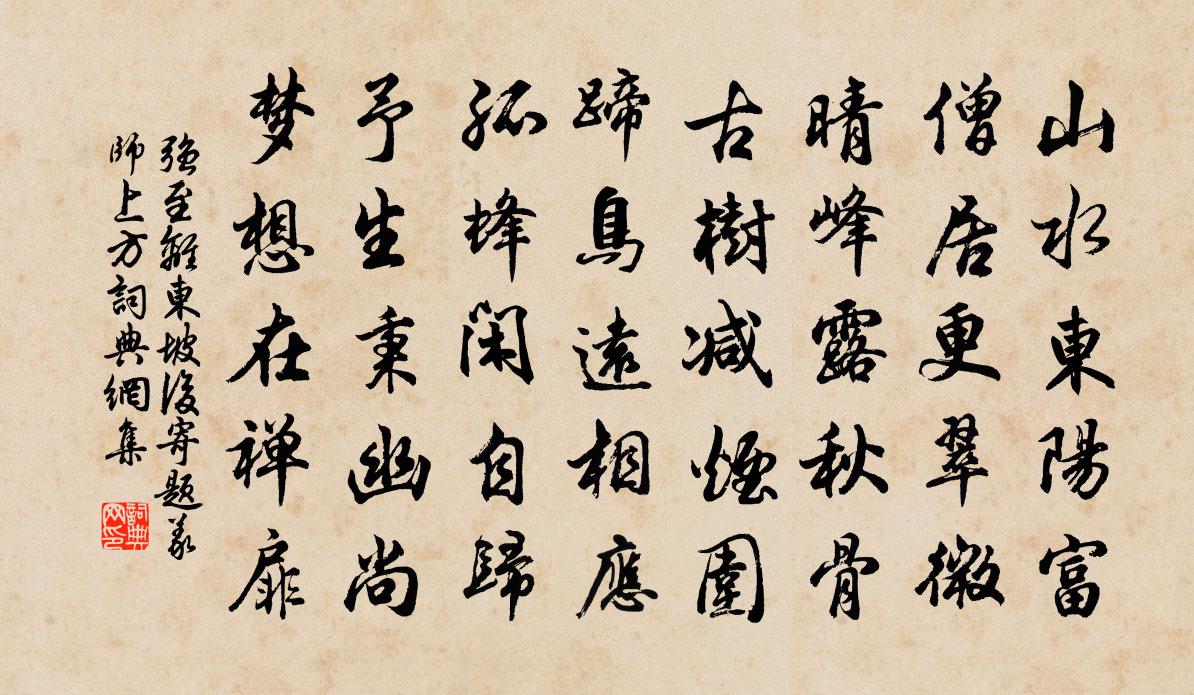 山水東陽富
僧居更翠微
晴峰露秋骨
古樹减煙圍
蹄鳥遠相應
孤蜂閑自歸
予生秉幽尚
梦想在禅扉
強至離東坡後寄題義
師上方詞典網集
詞典
网印